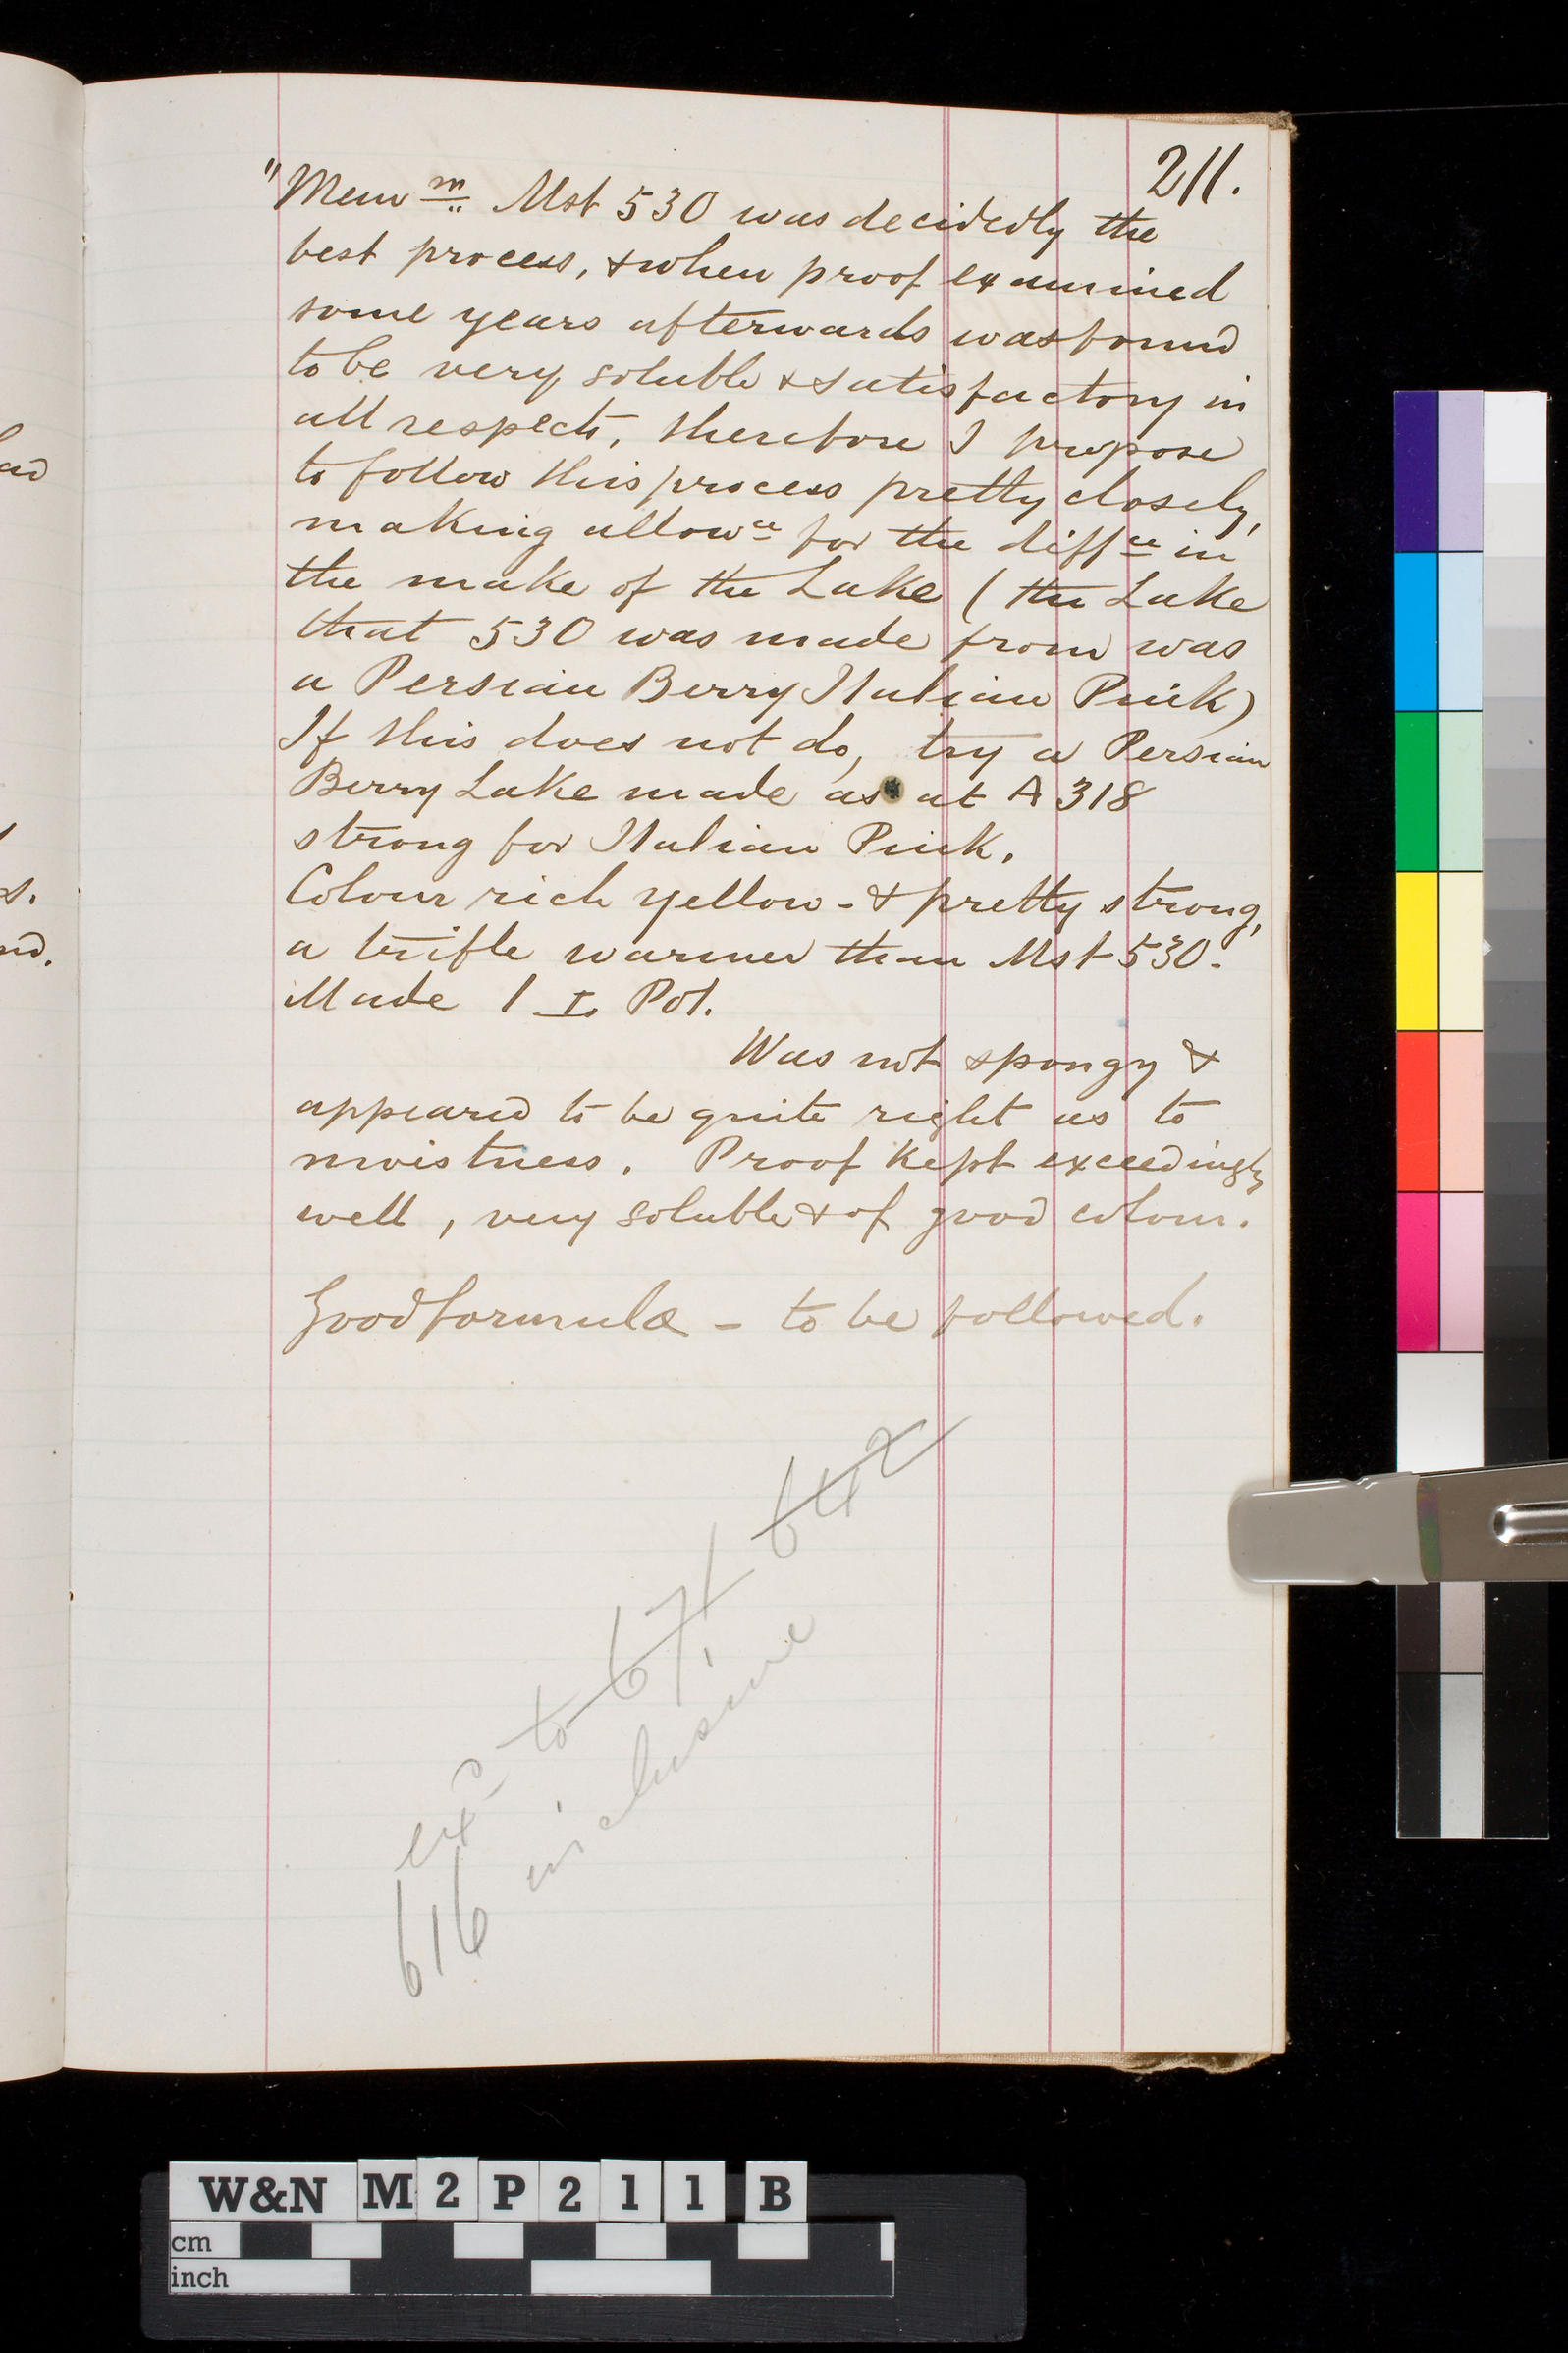 211.
"Mem m Mst 530 was decidedly the
best process, & when proof examined
some years afterwards was found
to be very soluble & satisfactory in
all respects, therefore I propose
to follow this process pretty closely,
making allowce for the diffce in
the make of the Lake (the Lake
that 530 was made from was
a Persian Berry Italian Pink)
If this does not do, try a Persian
Berry Lake made as at A 318
strong for Italian Pink.
Colour rich yellow - & pretty strong,
a trifle warmer than Mst 530.
Made 1 Pot.
Was not spongy &
appeared to be quite right as to
moistness. Proof kept exceedingly
well, very soluble & of good colour.
Good formula - to be followed.
exd to 671 642
616 inclusive
W&N M2P211B
cm
inch